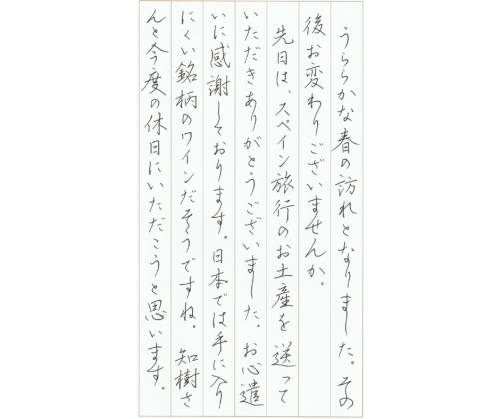 うららかな春の訪れとなりました。その
後お変わりございませんか。
先日は、スペイン旅行のお土産を送って
いただきありがとうございました。お心遣
いに感謝しております。日本では手に入り
にくい銘柄のワインだそうですね。知樹さ
んと今度の休日にいただこうと思います。